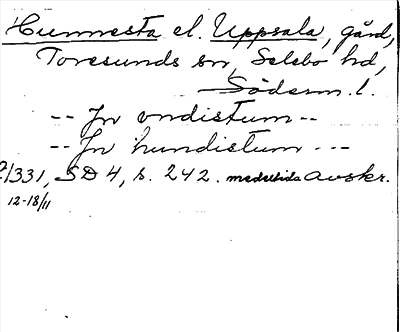 Hunnesta el. Uppsala, gård,
Toresunds sn, Selebo hd,
Söderm. l.
-- Jn vndistum --
-- Jn hundistum ---
1331, SD 4, s. 242. medeltida Avskr.
12-18/11